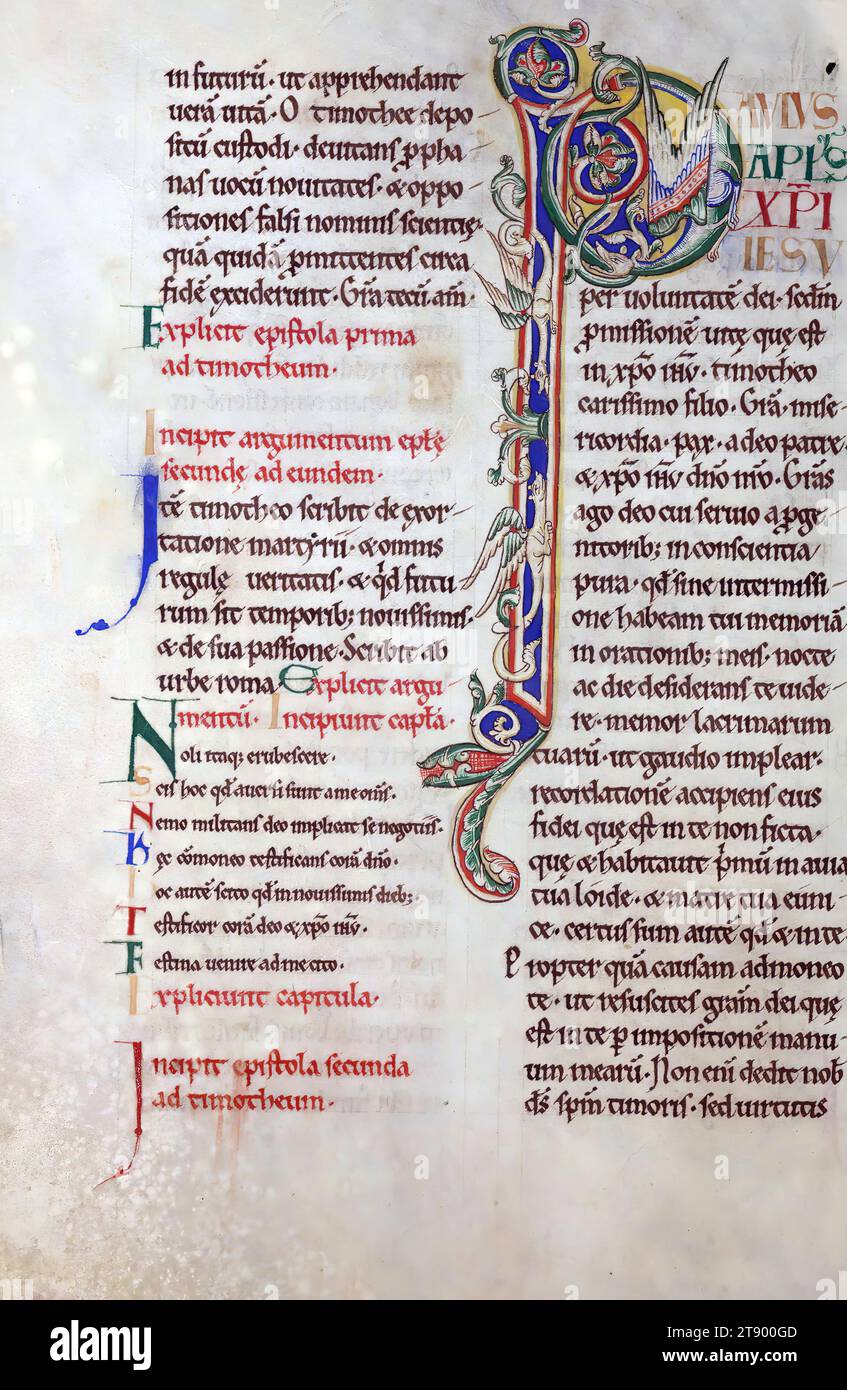 in futurū· ut apprehendant
uerā uitā· O timothee depo
situ᷑ custodi· deuitans ꝓpha
nas uocū nouitates· & oppo
sitiones falsi nominis scientię·
quā quidā ꝓmittentes circa
fidē exciderunt· Gr̄a tecū am̄·
Explicit epistola prima
ad timotheum·
Incipit argumentum epłę
secundę ad eundem·
Itē timotheo scribit de exor
tatione martyrii· & omnis
regulę ueritatis· & qd̄ futu
rum sit temporib; nouissimis·
& de sua passione· Scribit ab
urbe roma· Explicit argu
mentū· Incipiunt capła·
Noli itaq; erubescere·
Scis hoc qd̄ auersi sunt a me om̄s·
Nemo militans deo implicat se negotiis·
Hęc cōmoneo testificans corā dn̄o·
Hoc autē scito qd̄ in nouissimis dieb;
Testificor corā deo & xp̄o ih̄u·
Festina uenire ad me cito·
Expliciunt capitula·
Incipit epistola secunda
ad timotheum·
PAVLVS
APL̄S
XP̄I
IESV
per uoluntatē dei· sedm̄
ꝓmissionē uitę quę est
in xp̄o ih̄u· timotheo
carissimo filio· Gr̄a· mise
ricordia· pax· a deo patre
& xp̄o ih̄u dn̄o nr̄o· Gr̄as
ago deo cui seruio a ꝓge
nitorib; in conscientia
pura· qd̄ sine intermissi
one habeam tui memoriā
in orationib; meis· nocte
ac die desiderans te uide
re· memor lacrimarum
tuarū· ut gaudio implear·
recordationē accipiens eius
fidei quę est in te non ficta·
quę & habitauit p̄mū in auia
tua loide· & matre tua euni
ce· certus sum autē qd̄ & in te
Propter quā causam admoneo
te· ut resuscites gr̄am dei quę
est in te p̱ impositionē manu
um mearū· Non enī dedit nob̄
ds̄ spm̄ timoris· sed uirtutis
alamy
Image ID: 2T900GD
www.alamy.com